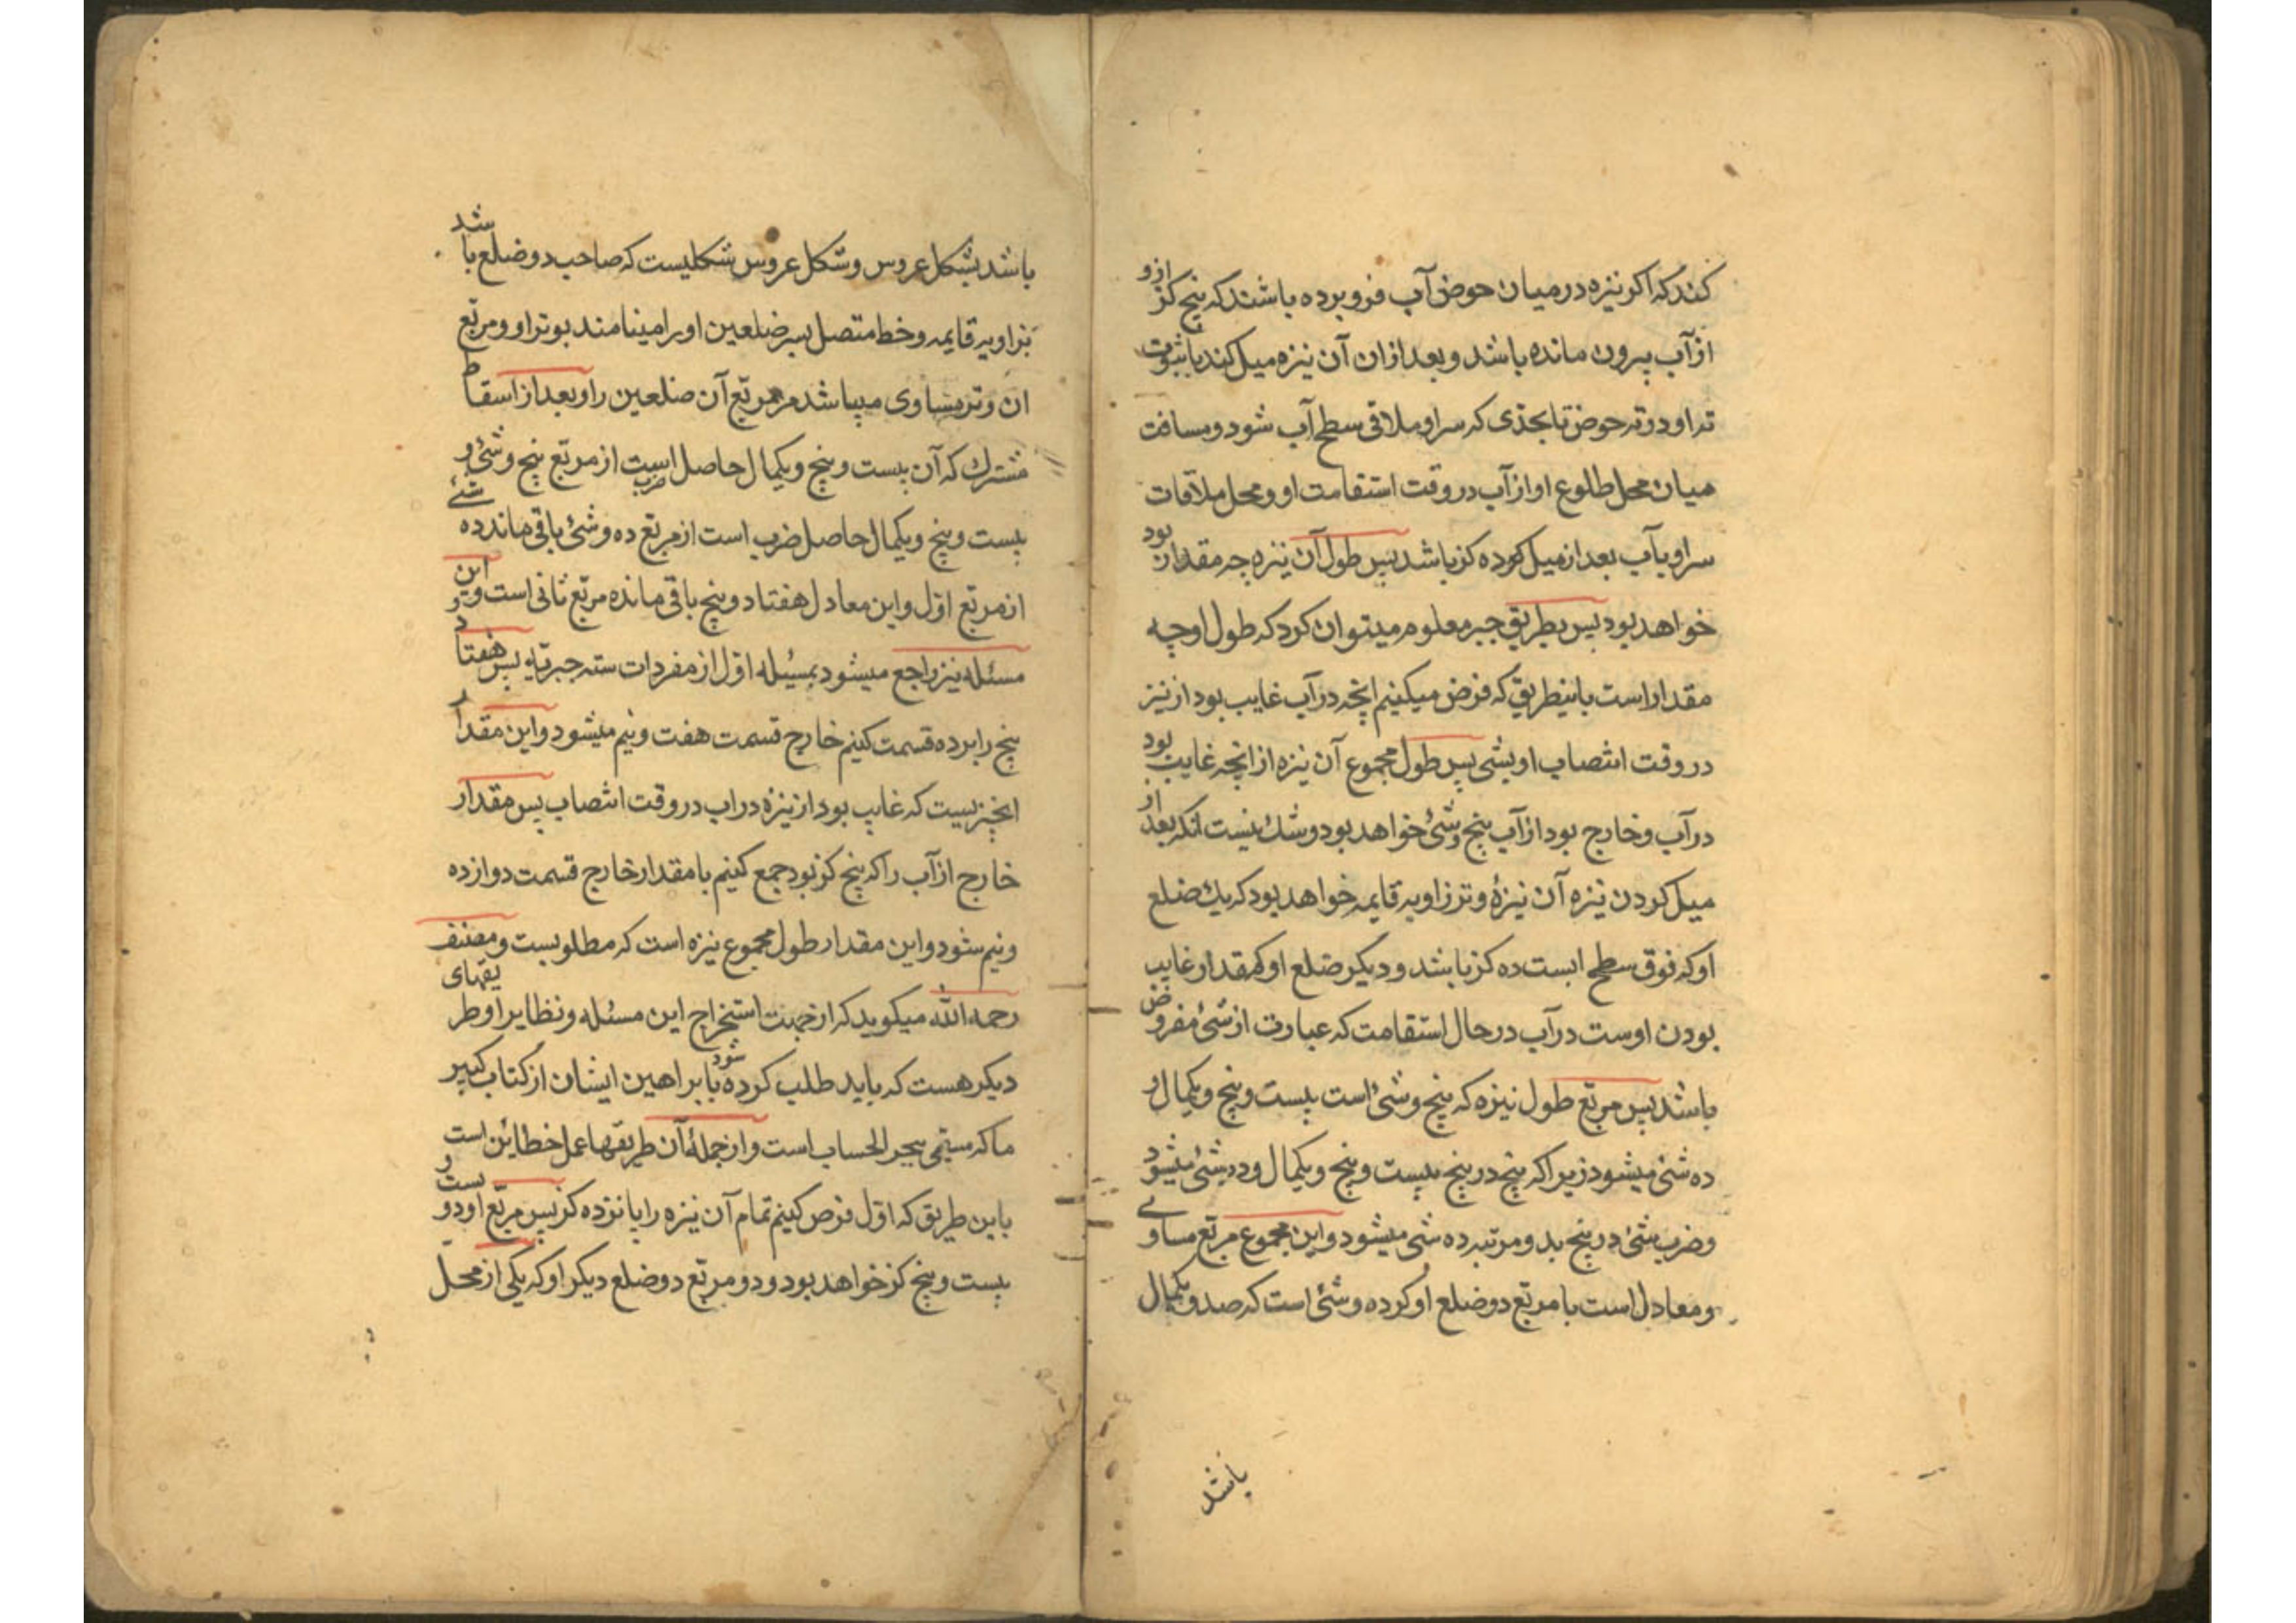 کنند که اکر نیزه در میان حوض آب فرو برده باشند که پنج کز ازو
از آب بیرون مانده باشد و بعد از ان آن نیزه میل کند با ثبوت
ته او در ته حوض تا بحدّی که سر او ملاقی سطح آب شود و مسافت
میان محل طلوع او از آب در وقت استقامت او و محل ملاقات
سر او بآب بعد از میل کرده کز باشد پس طول آن نیزه چه مقدار بود
خواهد بود پس بطریق جبر معلوم میتوان کرد که طول او چه
مقدار است باینطریق که فرض میکنیم انچه در آب غایب بود از نیز
در وقت انتصاب او بشئ پس طول مجموع آن نیزه از انچه غایب بود
در آب و خارج بود از آب پنج و شئ خواهد بود و شك نیست انکه بعد از
میل کردن نیزه آن نیزهٔ وتر زاویه قایمه خواهد بود که یك ضلع
او که فوق سطح ابست ده کز باشد و دیکر ضلع او که مقدار غایب
بودن اوست در آب در حال استقامت که عبارت از شئ مفروض
باشد پس مربّع طول نیزه که پنج و شئ است بیست و پنج و یکمال و
ده شئ میشود زیرا که پنج در پنج بیست و پنج و یکمال و ده شئ میشود
و ضرب شئ در پنج بدو مرتبه ده شئ میشود و این مجموع مربّع مساوے
و معادل است با مربّع دو ضلع او که ده و شئ است که صد و یکمال
باشد
باشد بشکل عروس و شکل عروس شکلیست که صاحب دو ضلع باشد
بزاویه قایمه و خط متصل بسر ضلعین او را مینامند بوتر او و مربّع
ان وتر مساوی میباشد مر مربّع آن ضلعین را و بعد از اسقاط
مشترك که آن بیست و پنج و یکمال حاصل ضرب است از مربّع پنج و شئ و
بیست و پنج و یکمال حاصل ضرب است از مربّع ده و شئ باقی ماند ده شئے
از مربّع اوّل و این معادل هفتاد و پنج باقی مانده مربّع ثانی است و این
مسئله نیز راجع میشود بمسئله اوّل از مفردات سته جبریّه پس هفتاد و
پنج را بر ده قسمت کنیم خارج قسمت هفت و نیم میشود و این مقدار
انچیزیست که غایب بود از نیزه در اب در وقت انتصاب پس مقدار
خارج از آب را که پنج کز بود جمع کنیم با مقدار خارج قسمت دوازده
و نیم شود و این مقدار طول مجموع نیزه است که مطلوبست و مصنف
رحمه الله میکوید که از جهت استخراج این مسئله و نظایر او طریقهای
دیکر هست که باید طلب کرده شود با براهین ایشان از کتاب کبیر
ما که مسمّی ببحر الحساب است و از جملهٔ آن طریقها عمل خطائین است
باین طریق که اوّل فرض کنیم تمام آن نیزه را پانزده کز پس مربّع او دویست و
بیست و پنج کز خواهد بود و دو مربّع دو ضلع دیکر او که یکی از محلّ